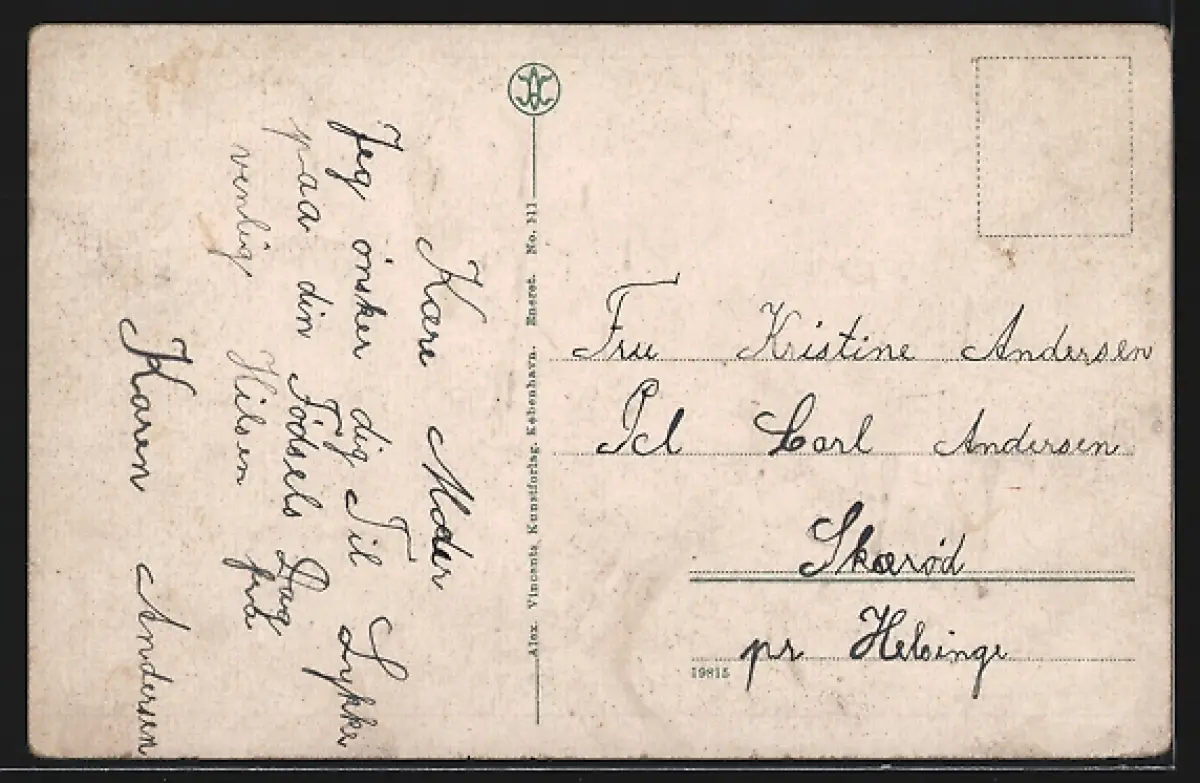 Kære Moder
Jeg ønsker dig Til Lykke
paa din Fødsels Dag
venlig Hilsen fra
Karen Andersen
Alex. Vincents Kunstforlag. København. Eneret. No. 311
Fru Kristine Andersen
Carl Andersen
Skærød
pr Helsinge
19815